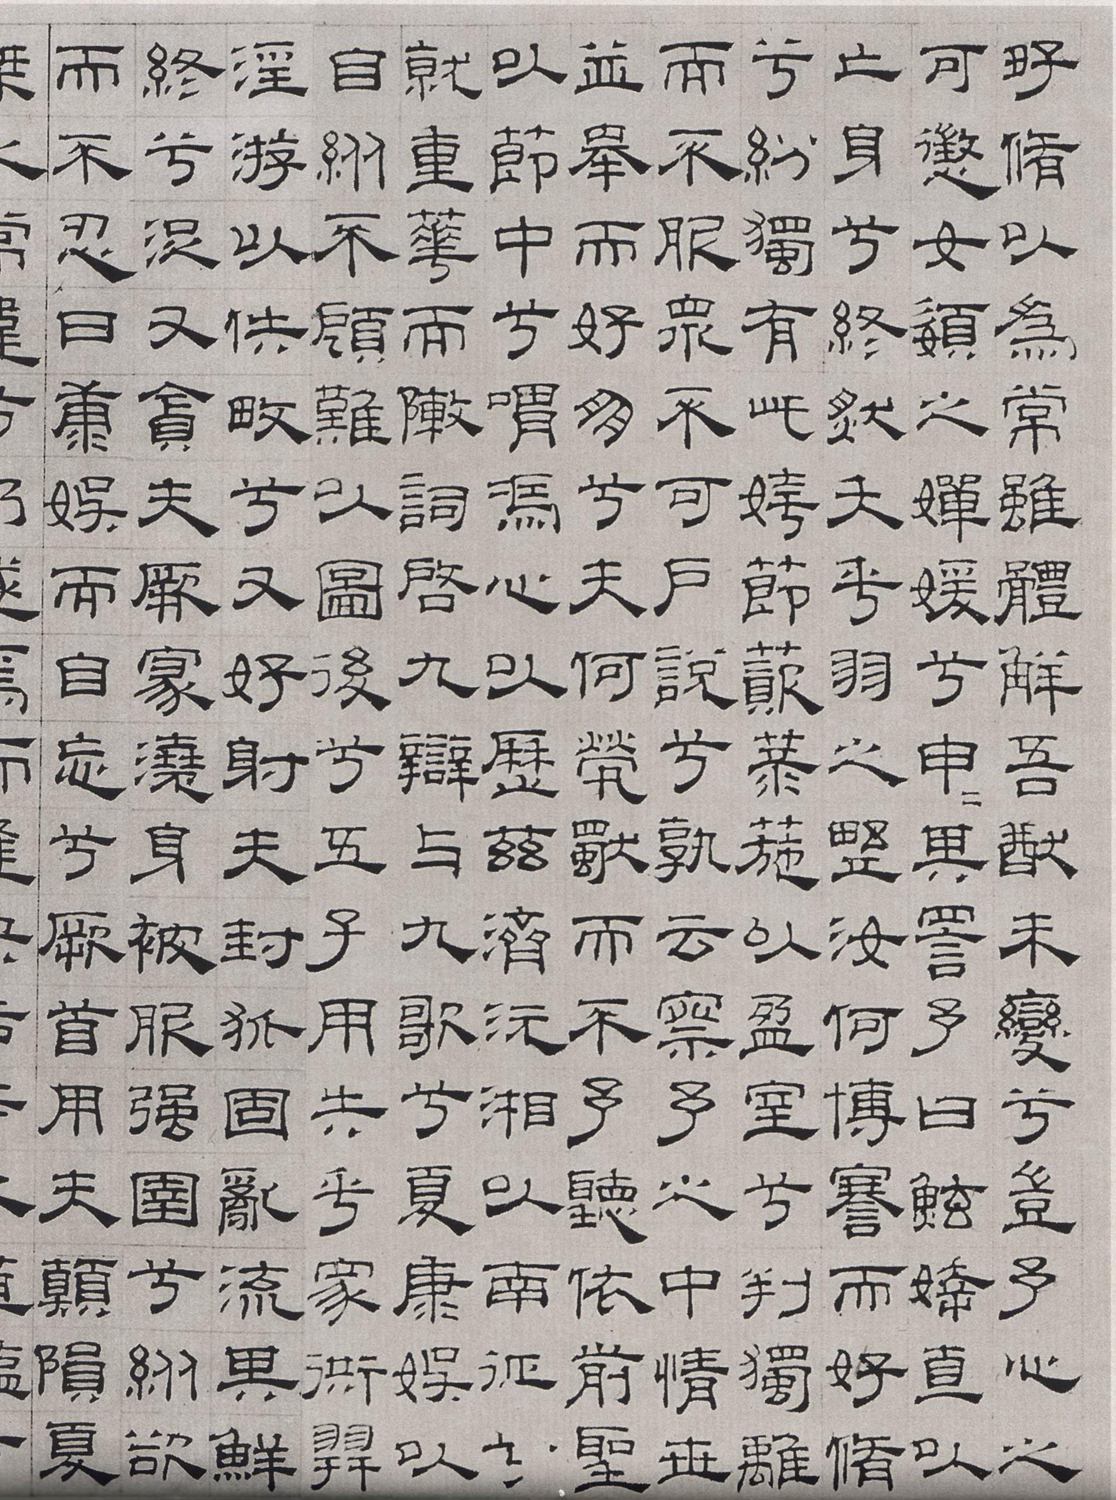 好脩以為常雖體解吾猶未變兮豈予心之
可懲女嬃之嬋媛兮申〻其詈予曰鮌婞直以
亡身兮終然夭乎羽之野汝何博謇而好脩
兮紛獨有此姱節薋菉葹以盈室兮判獨離
而不服眾不可戶說兮孰云察予之中情世
並舉而好朋兮夫何煢獨而不予聽依前聖
以節中兮喟馮心以歷茲濟沅湘以南征
就重華而敶詞啓九辯与九歌兮夏康娛以
自縱不顧難以圖後兮五子用失乎家衖羿
淫游以佚畋兮又好射夫封狐固亂流其鮮
終兮浞又貪夫厥家澆身被服强圉兮縱欲
而不忍日康娛而自忘兮厥首用夫顛隕夏